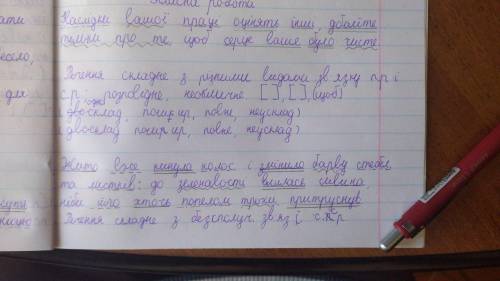 Класна робота
Наслідки вашої праці оцінять інші, дбайте
тільки про те, щоб серце ваше було чисте.
Речення складне з різними видами зв'язку пр і
с.р: розповідне, неокличне [ ], [ ], (щоб)
двосклад, пошир, повне, неусклад)
(двосклад пошир, повне, неусклад)
Жито вже кинуло колос і змінило барву стебел
та листків: до зеленавости влилась сивина,
ніби його хтось попелом трохи притрусив
Речення складне з безсполуч. зв'яз і с.п